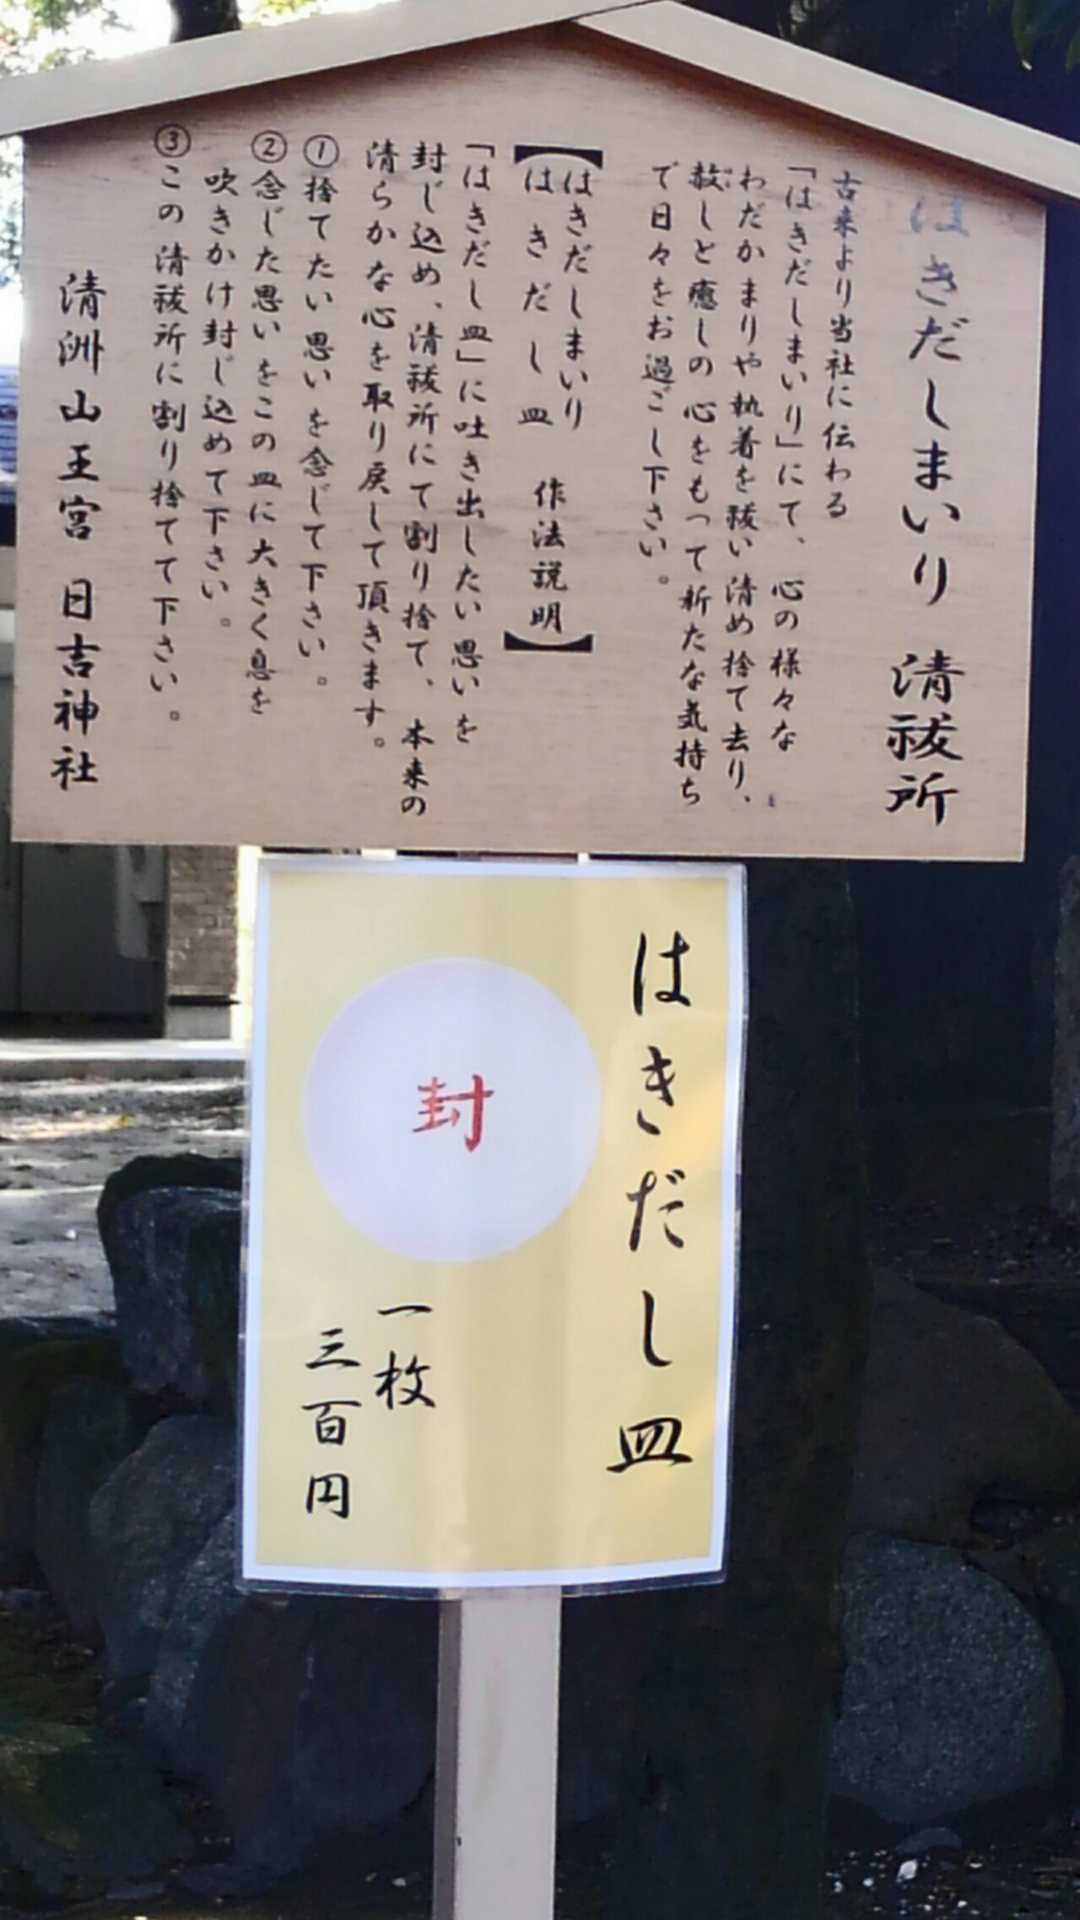 はきだしまいり 清祓所
古来より当社に伝わる
「はきだしまいり」にて、心の様々な
わだかまりや執着を祓い清め捨て去り、
赦しと癒しの心をもって新たな気持ち
で日々をお過ごし下さい。
【はきだしまいり
はきだし皿 作法説明】
「はきだし皿」に吐き出したい思いを
封じ込め、清祓所にて割り捨て、本来の
清らかな心を取り戻して頂きます。
①捨てたい思いを念じて下さい。
②念じた思いをこの皿に大きく息を
吹きかけ封じ込めて下さい。
③この清祓所に割り捨てて下さい。
清洲山王宮 日吉神社
はきだし皿
封
一枚
三百円